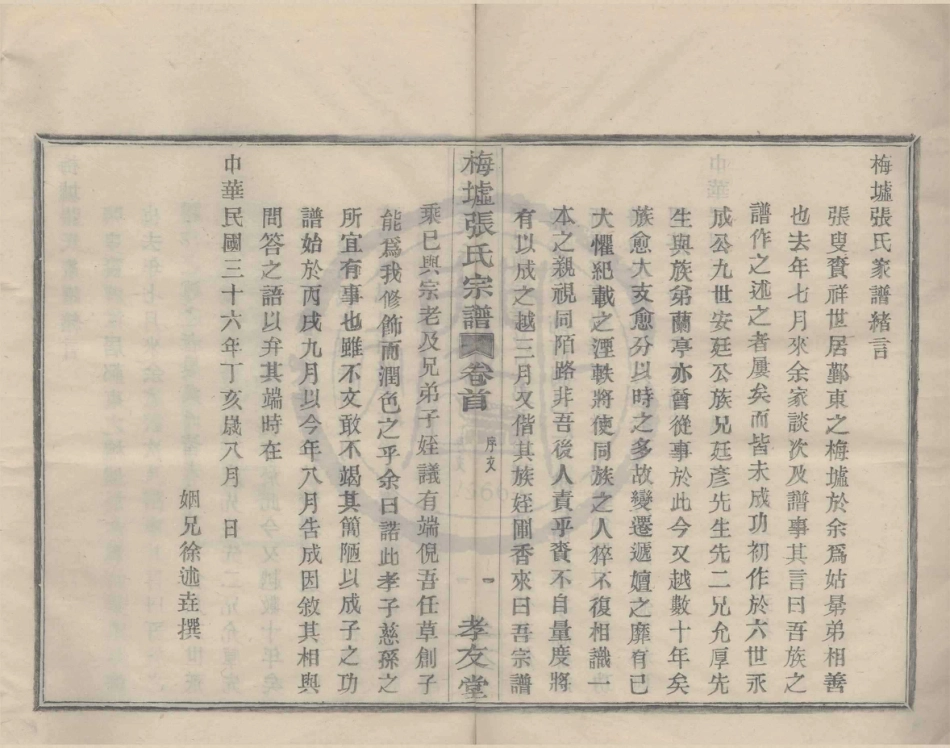 梅墟張氏家譜緒言
張叟賚祥世居鄞東之梅墟於余爲姑舅弟相善
也去年七月來余家談次及譜事其言曰吾族之
譜作之述之者屢矣而皆未成功初作於六世永
成公九世安廷公族兄廷彥先生先二兄允厚先
生與族弟蘭亭亦嘗從事於此今又越數十年矣
族愈大支愈分以時之多故變遷遞嬗之靡有已
大懼紀載之湮軼將使同族之人猝不復相識
本之親視同陌路非吾後人責乎賚不自量度將
有以成之越三月又偕其族姪圃香來曰吾宗譜
梅墟張氏宗譜 卷首 序文 一 孝友堂
乘已與宗老及兄弟子姪議有端倪吾任草創子
能爲我修飾而潤色之乎余曰諾此孝子慈孫之
所宜有事也雖不文敢不竭其簡陋以成子之功
譜始於丙戌九月以今年八月告成因敘其相與
問答之語以弁其端時在
中華民國三十六年丁亥歲八月 日
姻兄徐述垚撰